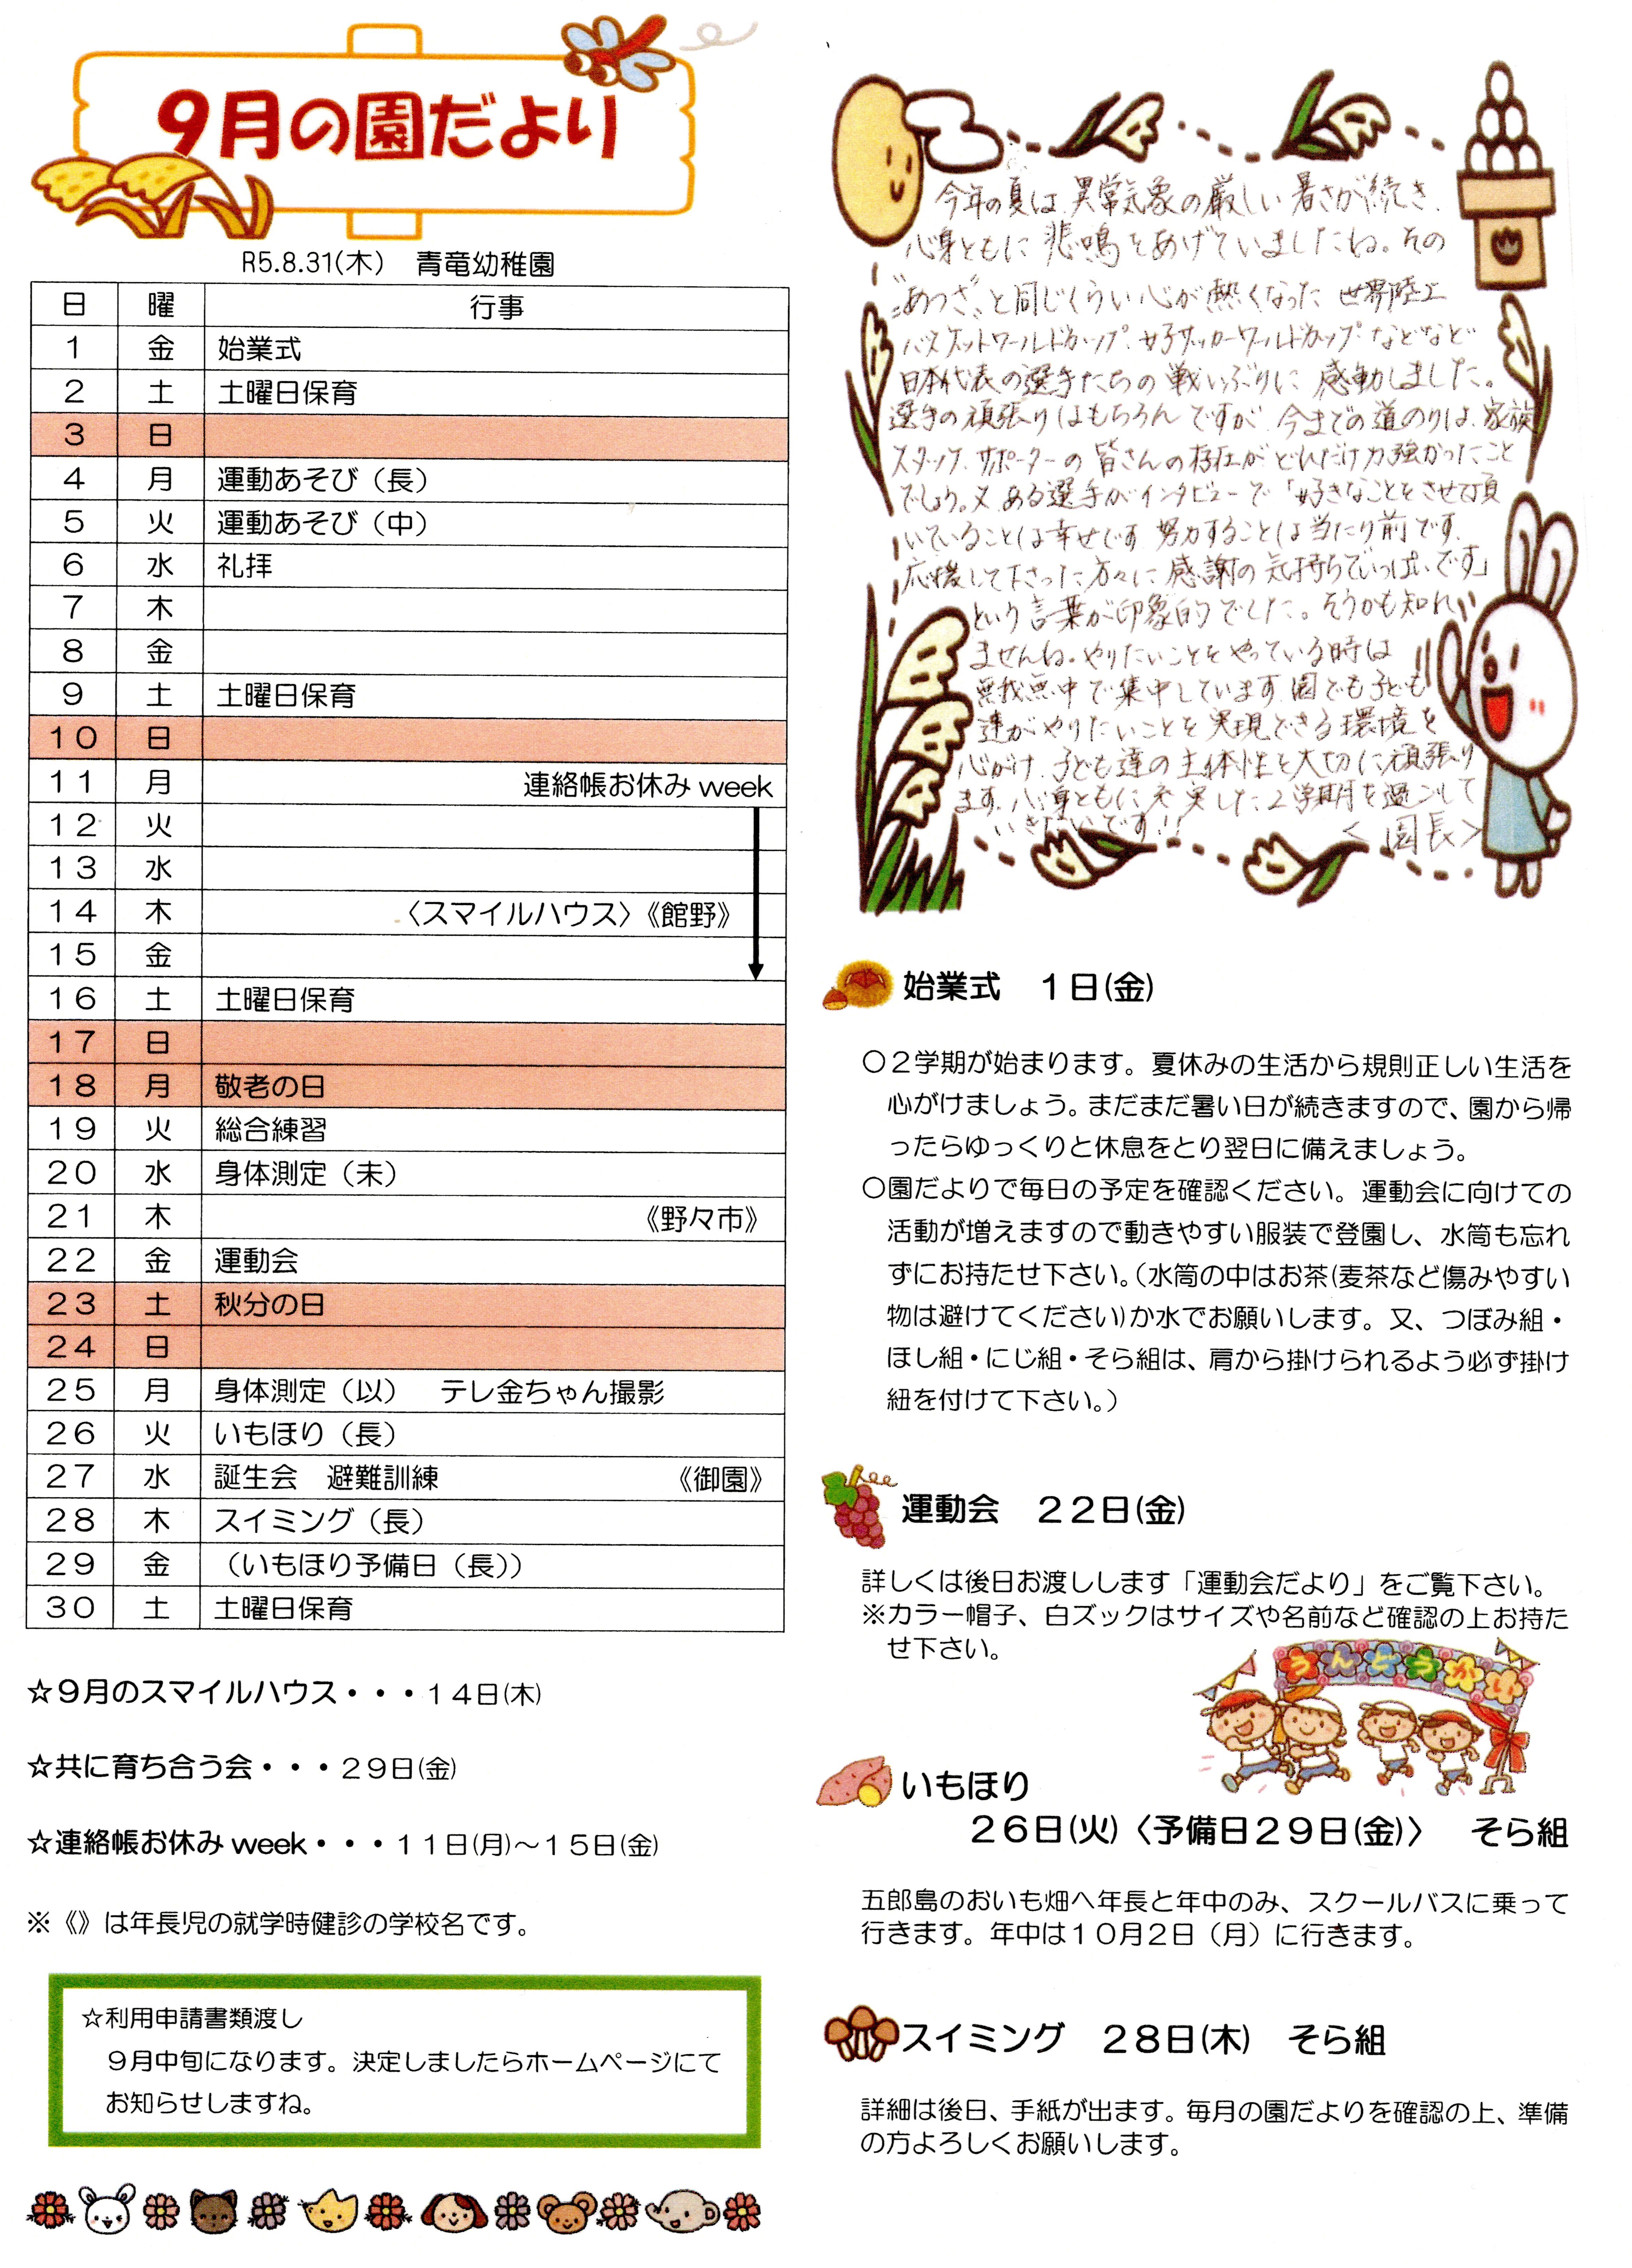 9月の園だより
R5.8.31(木)　青竜幼稚園
日 曜 行事
1 金 始業式
2 土 土曜日保育
3 日
4 月 運動あそび（長）
5 火 運動あそび（中）
6 水 礼拝
7 木
8 金
9 土 土曜日保育
10 日
11 月 連絡帳お休みweek
12 火
13 水
14 木 〈スマイルハウス〉《館野》
15 金
16 土 土曜日保育
17 日
18 月 敬老の日
19 火 総合練習
20 水 身体測定（未）
21 木 《野々市》
22 金 運動会
23 土 秋分の日
24 日
25 月 身体測定（以）　テレ金ちゃん撮影
26 火 いもほり（長）
27 水 誕生会　避難訓練 《御園》
28 木 スイミング（長）
29 金 （いもほり予備日（長））
30 土 土曜日保育
☆9月のスマイルハウス・・・14日(木)
☆共に育ち合う会・・・29日(金)
☆連絡帳お休みweek・・・11日(月)～15日(金)
※《》は年長児の就学時健診の学校名です。
☆利用申請書類渡し
9月中旬になります。決定しましたらホームページにて
お知らせしますね。
今年の夏は、異常気象の厳しい暑さが続き、
心身ともに悲鳴をあげていましたね。その
"あつさ"と同じくらい心が熱くなった世界陸上
バスケットワールドカップ、女子サッカーワールドカップなどなど
日本代表の選手たちの戦いぶりに感動しました。
選手の頑張りはもちろんですが、今までの道のりは、家族
スタッフ、サポーターの皆さんの存在がどれだけ力強かったこと
でしょう。又、ある選手がインタビューで「好きなことをさせて頂
いていることは幸せです 努力することは当たり前です。
応援して下さった方々に感謝の気持ちでいっぱいです」
という言葉が印象的でした。そうかも知れ
ませんね。やりたいことをやっている時は
無我無中で集中しています。園でも子ども
達がやりたいことを実現できる環境を
心がけ、子ども達の主体性を大切に頑張り
ます。心身ともに充実した2学期を過ごして
いきたいです!!　＜園長＞
始業式　1日(金)
○2学期が始まります。夏休みの生活から規則正しい生活を
心がけましょう。まだまだ暑い日が続きますので、園から帰
ったらゆっくりと休息をとり翌日に備えましょう。
○園だよりで毎日の予定を確認ください。運動会に向けての
活動が増えますので動きやすい服装で登園し、水筒も忘れ
ずにお持たせ下さい。(水筒の中はお茶(麦茶など傷みやすい
物は避けてください)か水でお願いします。又、つぼみ組・
ほし組・にじ組・そら組は、肩から掛けられるよう必ず掛け
紐を付けて下さい。)
運動会　22日(金)
詳しくは後日お渡しします「運動会だより」をご覧下さい。
※カラー帽子、白ズックはサイズや名前など確認の上お持た
せ下さい。
うんどうかい
いもほり
26日(火)〈予備日29日(金)〉　そら組
五郎島のおいも畑へ年長と年中のみ、スクールバスに乗って
行きます。年中は10月2日（月）に行きます。
スイミング　28日(木)　そら組
詳細は後日、手紙が出ます。毎月の園だよりを確認の上、準備
の方よろしくお願いします。